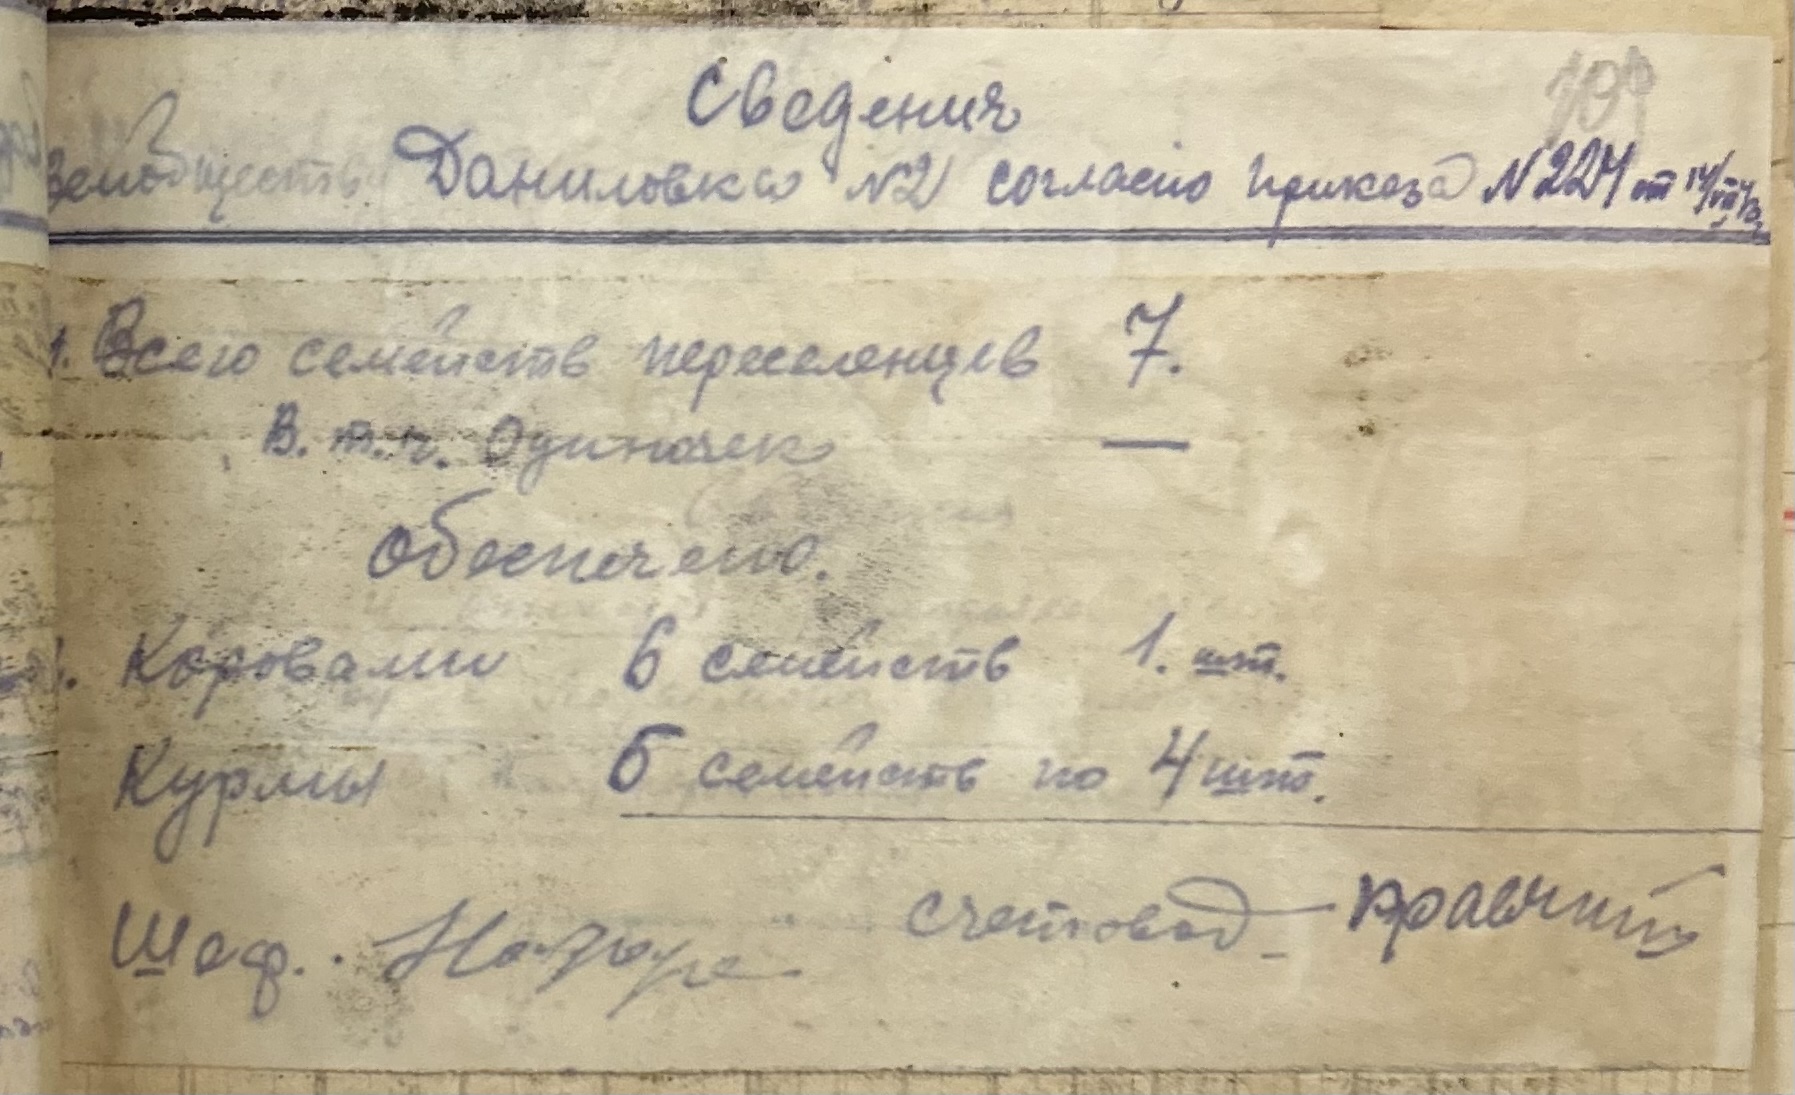 Сведения
Земобществ Даниловка №2 согласно приказа №224 от 14/VIII 43
1. Всего семейств переселенцев 7.
В. т. ч. Одиночек —
Обеспечено.
Коровами 6 семейств 1. шт.
Курмы 5 семейств по 4 шт.
Шеф. Счетовод - Кравчий